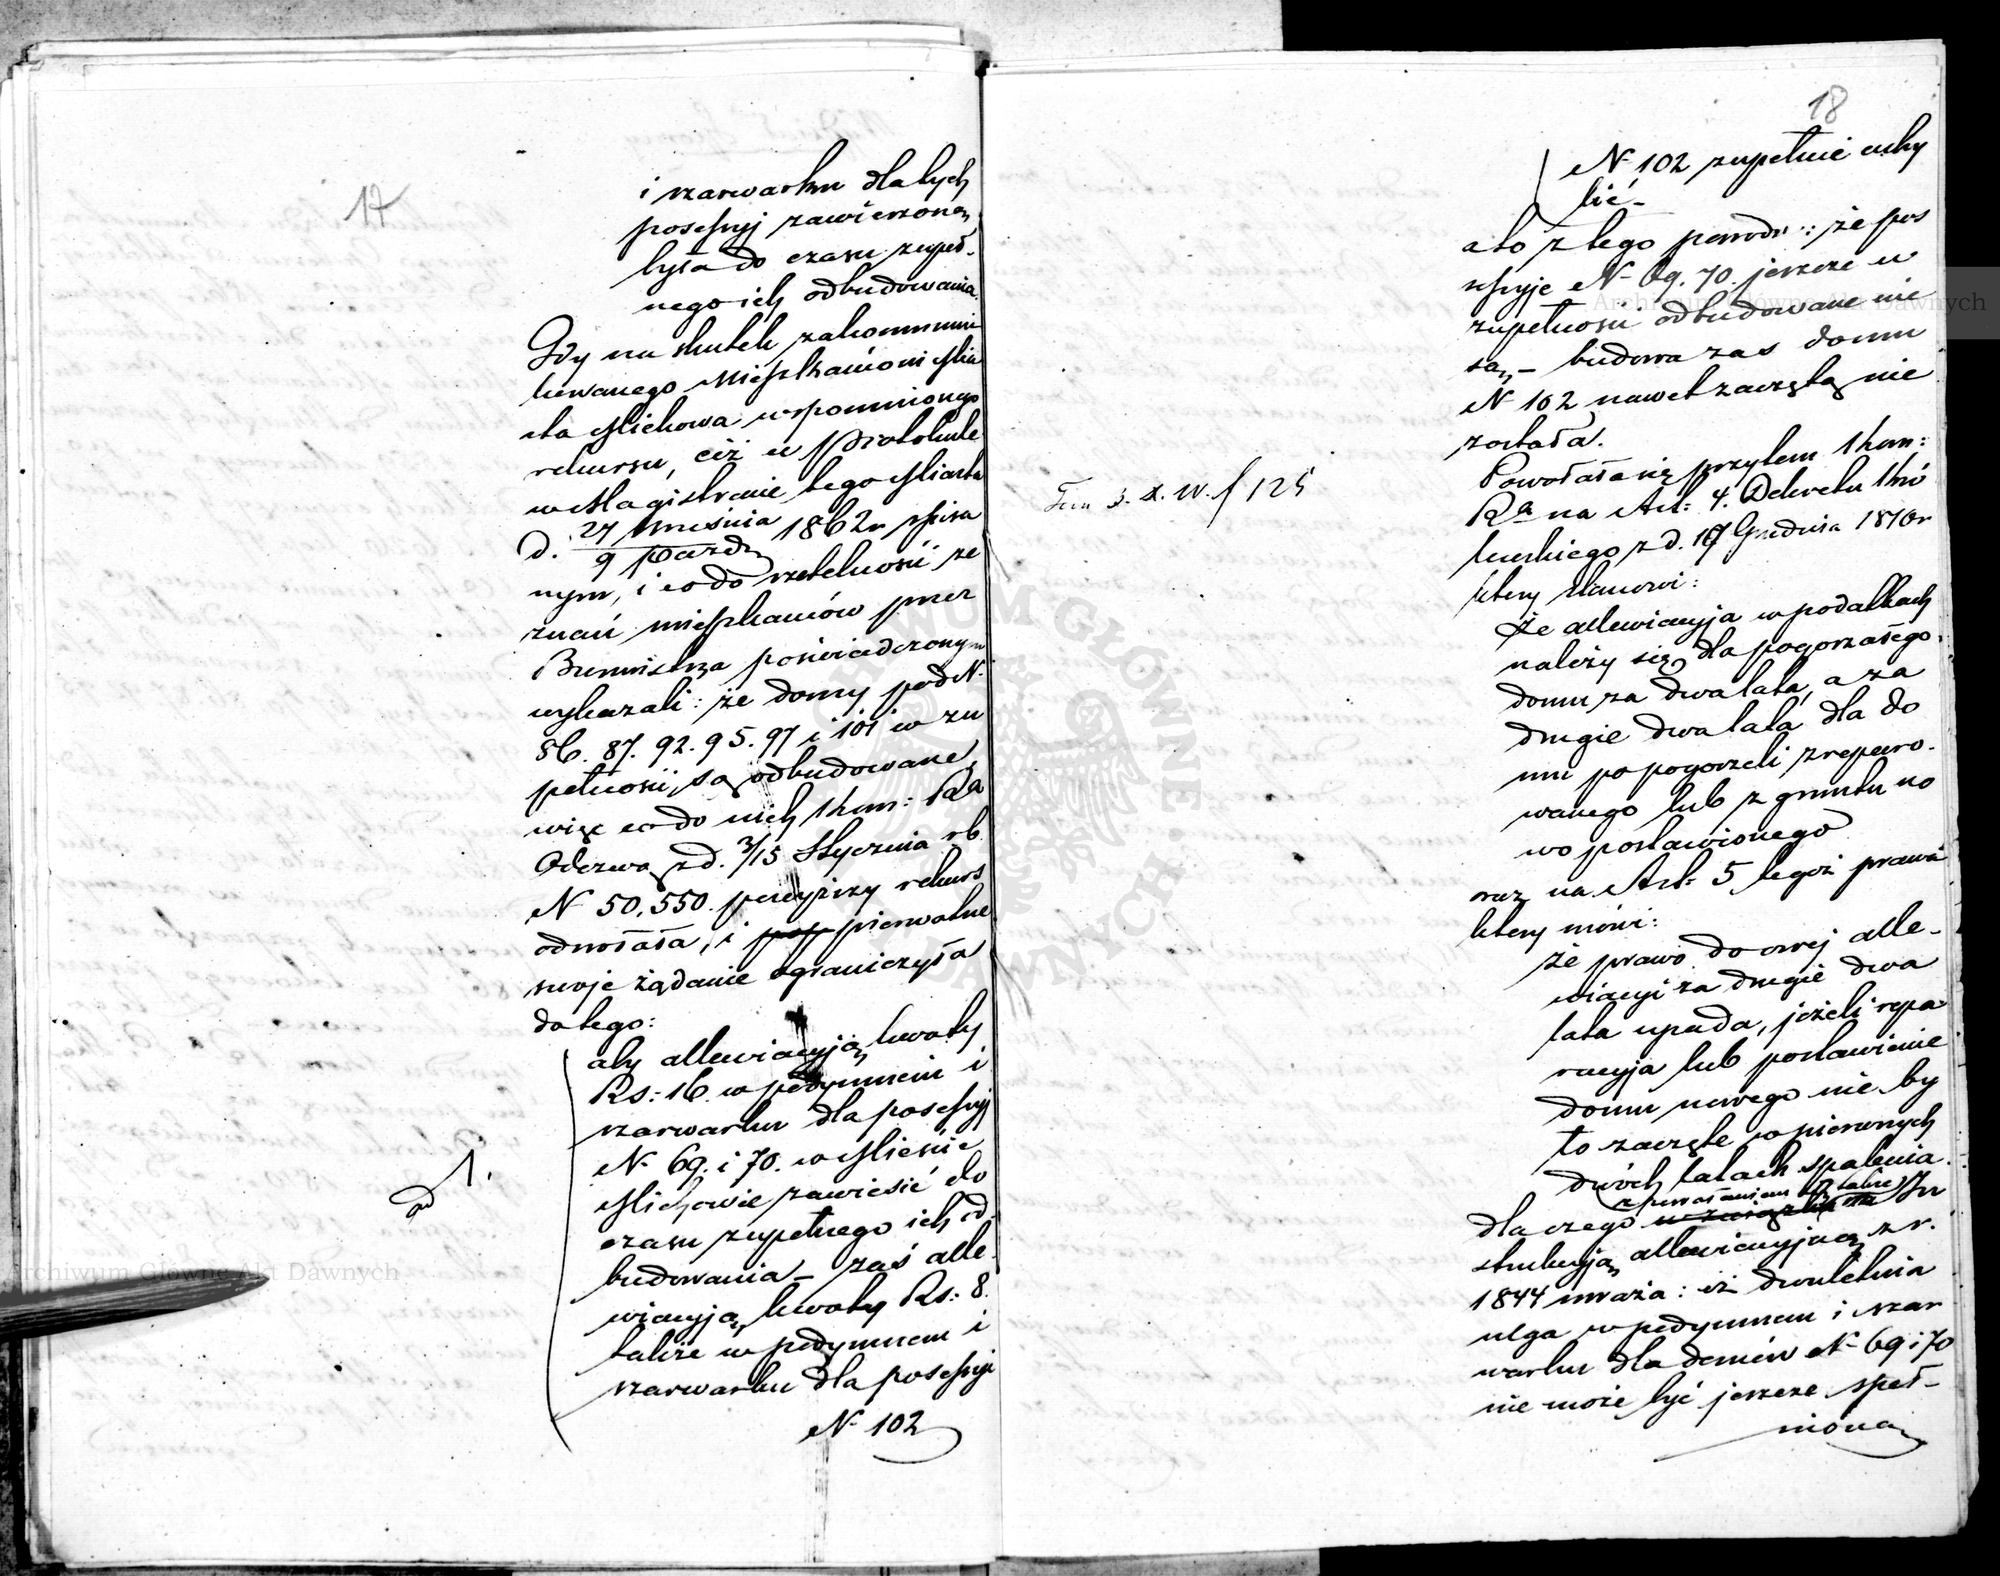 17
i szarwarku dla tych
posessyj zawieszoną
była do czasu zupeł-
nego ich odbudowania.
Gdy na skutek zakommuni
kowanego Mieszkańcom Mia
sta Miechowa wspomnionego
rekursu, ciż w Protokule
w Magistracie tego Miasta
d. 27 Września / 9 Paźdz 1862 r spisa
nym, i co do rzetelności ze
znań mieszkańców przez
Burmistrza poświadczonym
wykazali: że domy pod N.
86. 87. 92. 95. 97 i 101 w zu
pełności są odbudowane,
więc co do nich Skar: Ra
Odezwą z d. 3/15 Stycznia rb
N 50,550. powyższy rekurs
odwołała, i pierwotne
swoje żądanie ograniczyła
do tego:
aby allewiacyją kwoty
Rs: 16. w podymnem i
szarwarku dla posessyj
N. 69. i 70. w Mieście
Miechowie zawiesić do
czasu zupełnego ich od
budowania – zaś alle
wiacyją kwoty Rs: 8.
także w podymnem i
szarwarku dla posessyi
N. 102
ad 1.
18
N 102 zupełnie uchy
lić –
a to z tego powodu: że pos
sessyje N. 69. 70. jeszcze w
zupełności odbudowane nie
są, – budowa zas domu
N 102 nawet zaczętą nie
została.
Powołała się przytem Skar:
Ra na Art: 4. Dekretu Kró
lewskiego z d. Grudnia 1810 r
który stanowi:
Że allewiacyja w podatkach
należy się dla pogorzałego
domu za dwa lata, a za
drugie dwa lata dla do
mu po pogorzeli zreparo-
wanego lub z gruntu no
wo postawionego
oraz na Art: 5 tegoż prawa
który mówi:
że prawo do owej alle-
wiacyi za drugie dwa
lata upada, jeżeli repa
racyja lub postawienie
domu nowego nie by
ło zaczęte w pierwszych
dwóch latach spalenia.
z powołaniem
dla czego w związku In
strukcyją allewiacyjną z r.
1844 uważa: iż dwuletnia
ulga w podymnem i szar
warku dla domów N. 69 i 70
nie może być jeszcze speł-
nioną
Archiwum Główne Akt Dawnych
Archiwum Główne Akt Dawnych
ARCHIWUM GŁÓWNE AKT DAWNYCH